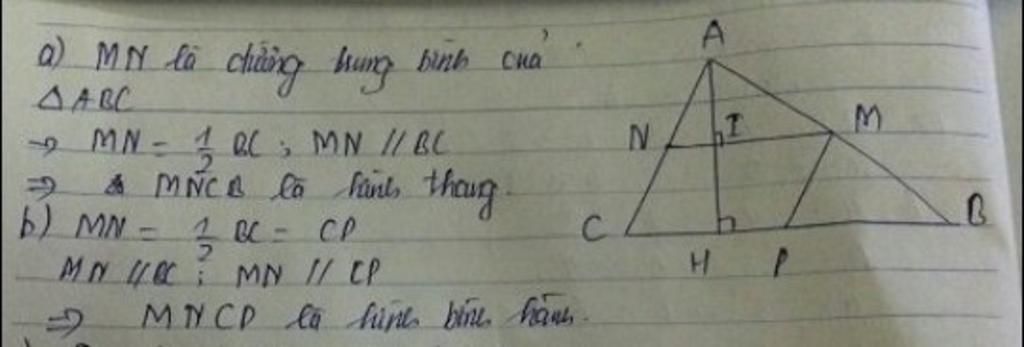 a) MN là đường trung bình của
△ABC
→ MN = 1/2 BC ; MN // BC
⇒ MNCB là hình thang.
b) MN = 1/2 BC = CP
MN // BC ; MN // CP
⇒ MNCP là hình bình hành.
A
N I M
C B
H P